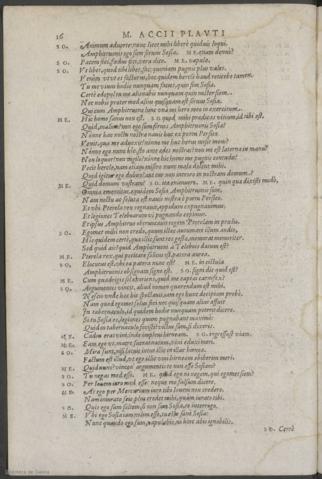 16 M. ACCII PLAVTI
SO. Animum aduerte: nunc licet mihi libere quiduis loqui.
Amphitruonis ego sum seruus Sosia. ME. etiam denuò?
SO. Pacem feci, foedus feci, vera dico. ME. vapula.
SO. Vt libet, quod tibi libet, fac: quoniam pugnis plus vales.
Verùm vtut es facturus, hoc quidem hercle haud reticebo tamen.
Tu me viuus hodie nunquam facies, quin sim Sosia.
Certè edepol tu me alienabis nunquam quin noster siem.
Nec nobis præter me alius quisquam est seruus Sosia.
Qui cum Amphitruone hinc vna iui hero in exercitum.
ME. Hic homo sanus non est. SO. quod mihi prædicas vitium, id tibi est.
Quid, malùm? non ego sum seruus Amphitruonis Sosia?
Nónne hac noctu nostra nauis huc ex portu Persico
Venit, quæ me aduexit? nónne me huc herus misit meus?
Nónne ego nunc hîc sto ante ædes nostras? non mi est laterna in manu?
Non loquor? non vigilo? nónne hic homo me pugnis contudit?
Fecit hercle, nam etiam misero nunc malæ dolent mihi.
Quid igitur ego dubito? aut cur non introeo in nostram domum?
ME. Quid domum vestram? SO. ita enimuero. ME. quin quæ dixisti modò,
Omnia ementitus. equidem Sosia Amphitruonis sum.
Nam noctu ac soluta est nauis nostra è portu Persico.
Et vbi Pterela rex regnauit, oppidum expugnauimus.
Et legiones Teleboarum vi pugnando cepimus.
Et ipsus Amphitruo obtruncauit regem Pterelam in prælio.
SO. Egomet mihi non credo, quum illæc autumare illum audio,
Hic quidem certè, quæ illic sunt res gestæ, memorat memoriter.
Sed quid ais? quid Amphitruoni à Telebois datum est?
ME. Pterela rex qui potitare solitus est patera aurea.
SO. Elocutus est. vbi ea patera nunc est? ME. in cistula
Amphitruonis obsignata signo est. SO. signi dic quid est?
ME. Cum quadrigis sol exoriens, quid me captas carnifex?
SO. Argumentis vincit, aliud nomen quærendum est mihi,
Nescio vnde hæc hic spectauit. iam ego hunc decipiam probè,
Nam quod egomet solus feci, nec quisquam alius affuit
In tabernaculo, id quidem hodie nunquam poterit dicere.
Si tu Sosia es, legiones quum pugnabant maximè:
Quid in tabernaculo fecisti? victus sum, si dixeris.
ME. Cadus erat vini, inde impleui hirneam. SO. ingressus est viam.
ME. Eam ego vt matre fuerat natum, vini eduxi meri.
SO. Mira sunt, nisi latuit intus illic in illac hirnea.
Factum est illud, vt ego illic vini hirneam ebiberim meri.
ME. Quid nunc? vincon' argumentis te non esse Sosiam?
SO. Tu negas med esse. ME. quid ego ni negem, qui egomet siem?
SO. Per Iouem iuro med esse: neque me falsum dicere.
ME. At ego per Mercurium iuro tibi Iouem non credere.
Nam iniurato scio plus credet mihi, quàm iurato tibi.
SO. Quis ego sum saltem, si non sum Sosia, te interrogo.
ME. Vbi ego Sosia esse nolim esse, tu esto sanè Sosia:
Nunc quando ego sum, vapulabis, ni hinc abis ignobilis.
SO. Certè